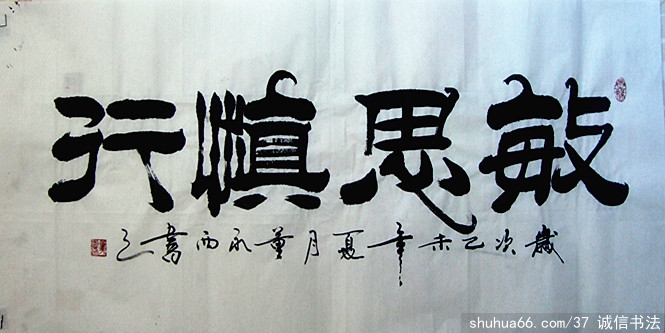 敏思慎行
岁次己未年夏月董永西書之
shuhua66.com/37 诚信书法